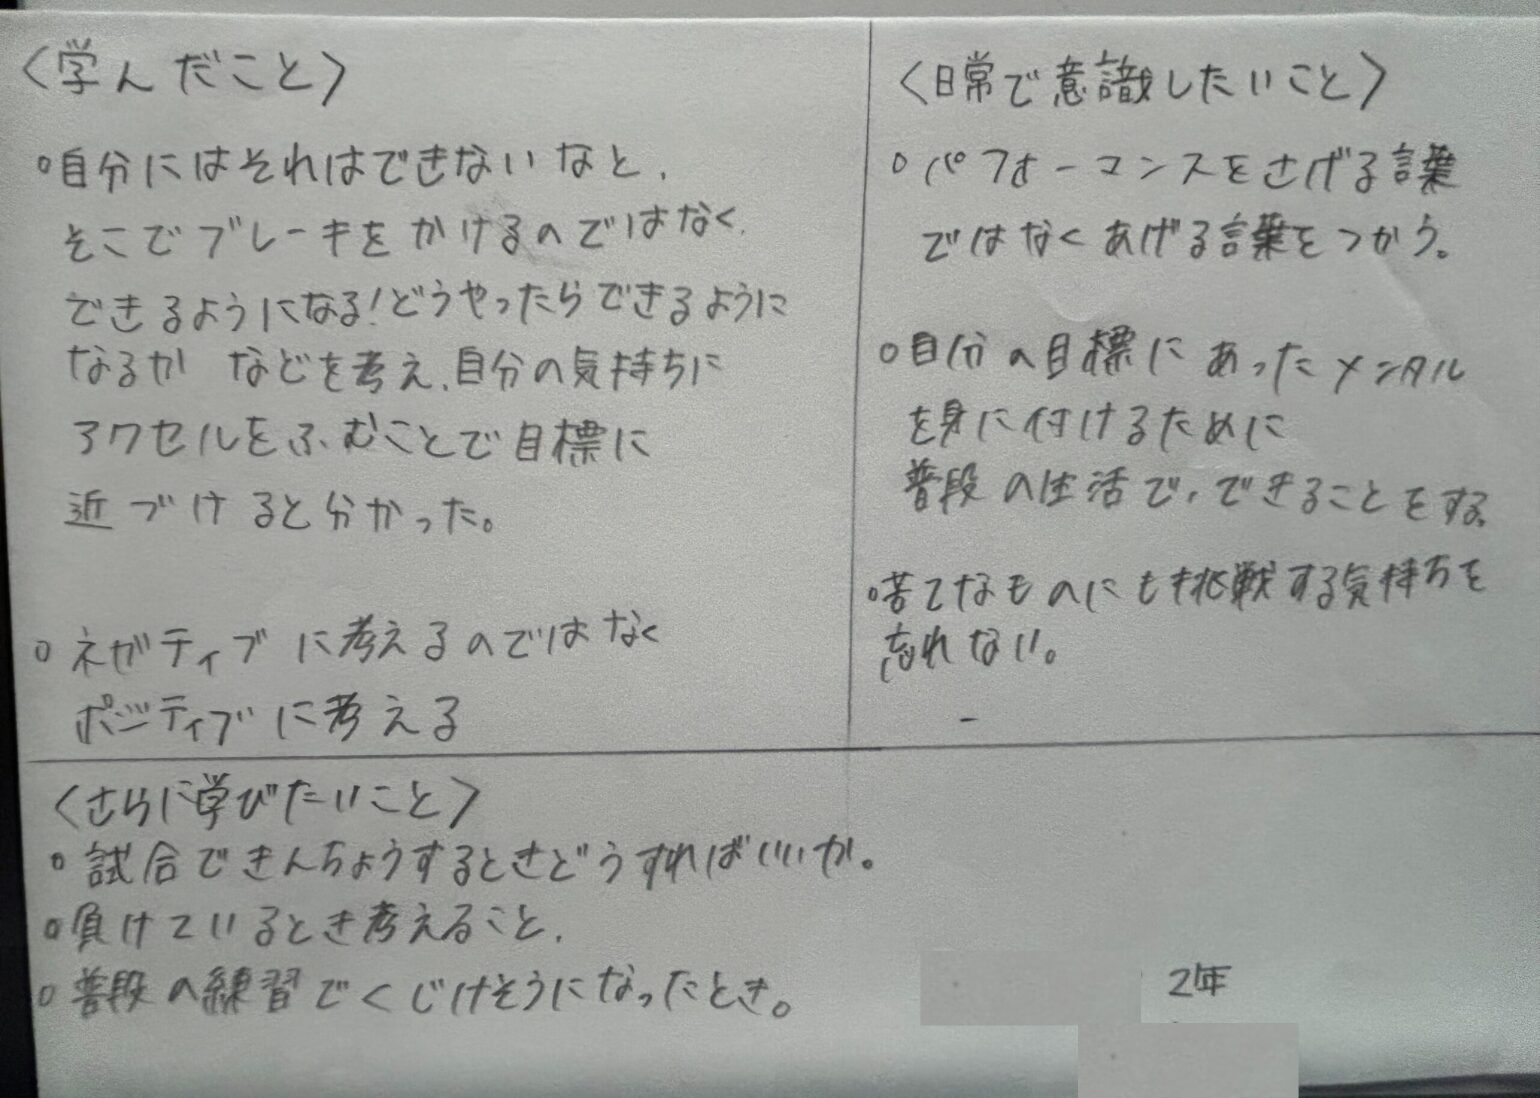 〈学んだこと〉
○自分にはそれはできないなと、
そこでブレーキをかけるのではなく、
できるようになる!どうやったらできるように
なるか などを考え、自分の気持ちに
アクセルをふむことで目標に
近づけると分かった。
○ネガティブに考えるのではなく
ポジティブに考える
〈日常で意識したいこと〉
○パフォーマンスをさげる言葉
ではなくあげる言葉をつかう。
○自分の目標にあったメンタル
を身に付けるために
普段の生活で、できることをする。
○苦てなものにも挑戦する気持ちを
忘れない。
〈さらに学びたいこと〉
○試合できんちょうするときどうすればいいか。
○負けているとき考えること、
○普段の練習でくじけそうになったとき。
2年